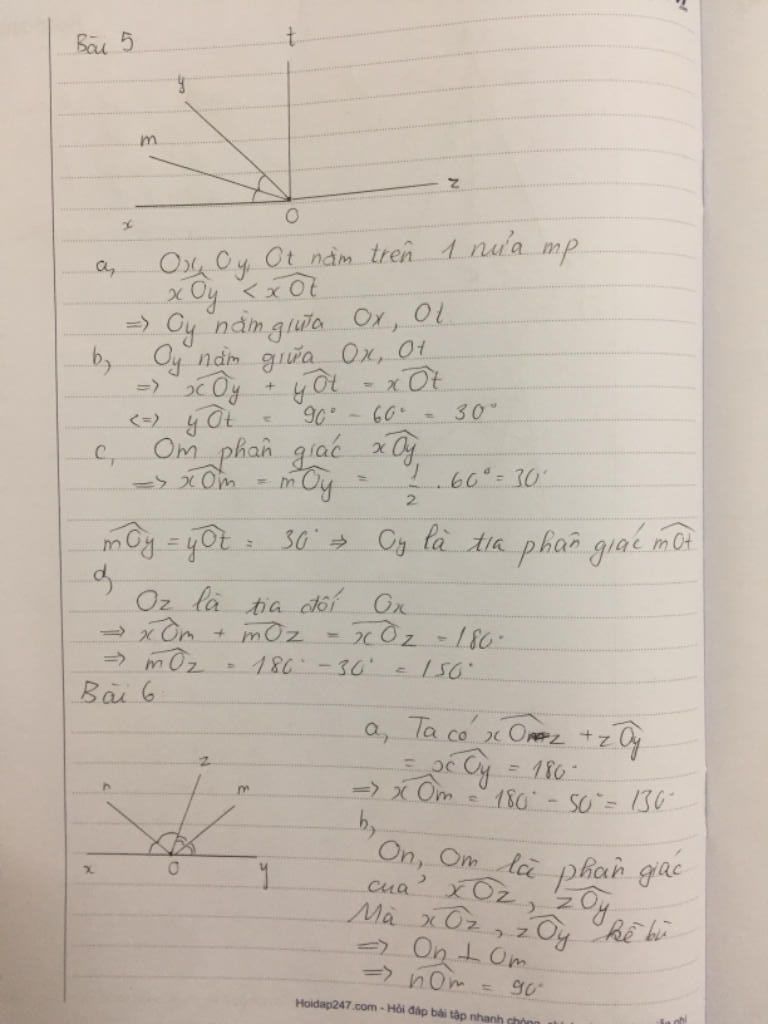 Bài 5
t
y
m
z
x
O
a, Ox, Oy, Ot nằm trên 1 nửa mp
xOy < xOt
=> Oy nằm giữa Ox, Ot
b, Oy nằm giữa Ox, Ot
=> xOy + yOt = xOt
<=> yOt = 90° - 60° = 30°
c, Om phân giác xOy
=> xOm = mOy = 1/2 . 60° = 30°
mOy = yOt = 30° => Oy là tia phân giác mOt
d,
Oz là tia đối Ox
=> xOm + mOz = xOz = 180°
=> mOz = 180° - 30° = 150°
Bài 6
a, Ta có xOz + zOy
= xOy = 180°
=> xOm = 180° - 50° = 130°
z
n
m
x
O
y
b,
On, Om là phân giác
của xOz, zOy
Mà xOz, zOy kề bù
=> On ⊥ Om
=> nOm = 90°
Hoidap247.com - Hỏi đáp bài tập nhanh chóng,